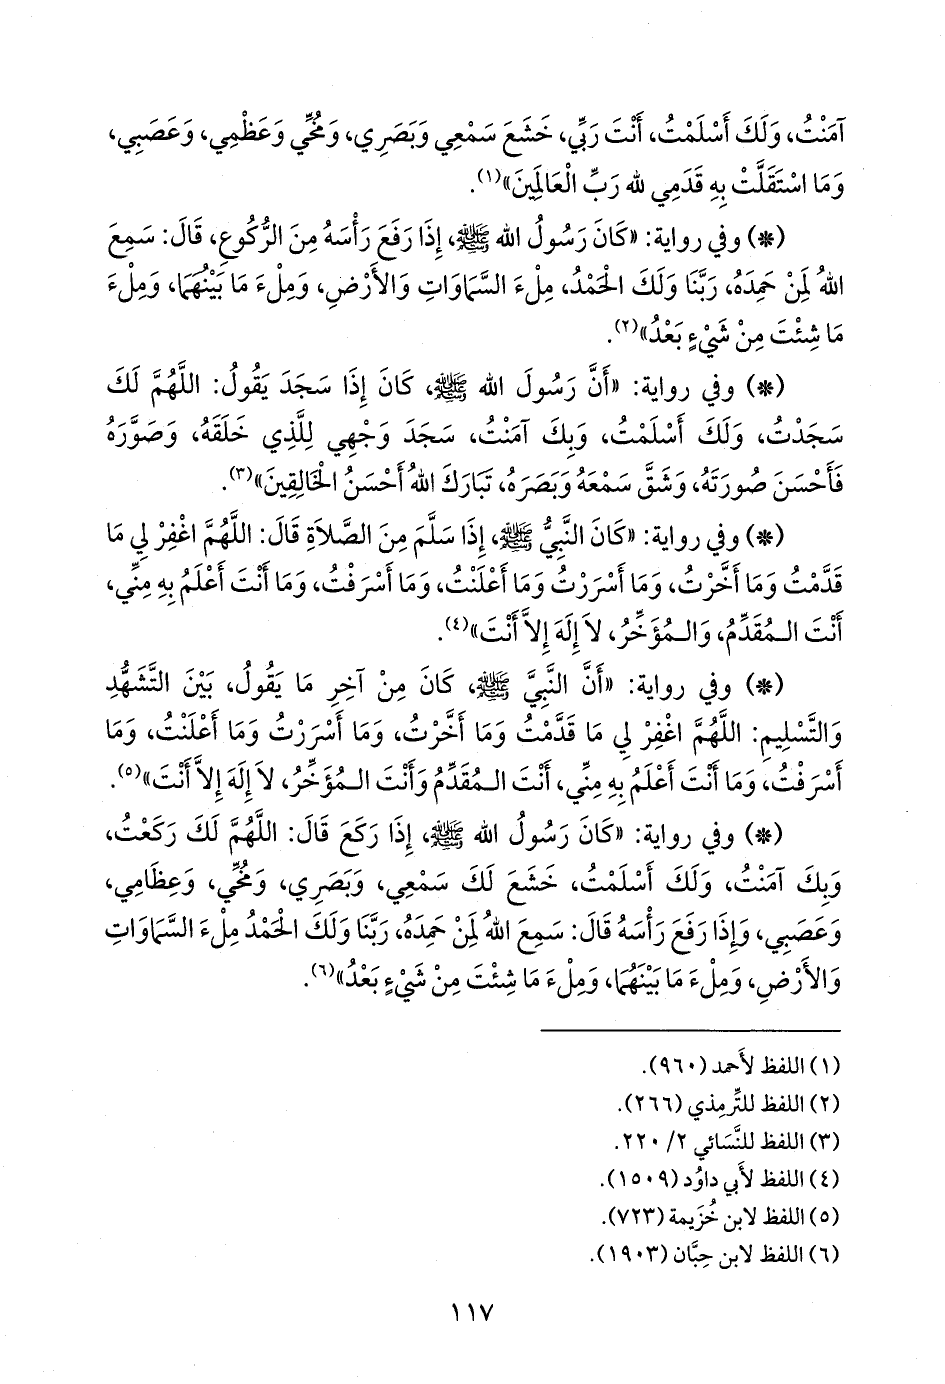 آمَنْتُ، وَلَكَ أَسْلَمْتُ، أَنْتَ رَبِّي، خَشَعَ سَمْعِي وَبَصَرِي، وَمُخِّي وَعَظْمِي، وَعَصَبِي،
وَمَا اسْتَقَلَّتْ بِهِ قَدَمِي لله رَبِّ الْعَالَمِينَ»(١).
(*) وفي رواية: «كَانَ رَسُولُ الله ﷺ، إِذَا رَفَعَ رَأْسَهُ مِنَ الرُّكُوعِ، قَالَ: سَمِعَ
اللهُ لِمَنْ حَمِدَهُ، رَبَّنَا وَلَكَ الْحَمْدُ، مِلْءَ السَّمَاوَاتِ وَالأَرْضِ، وَمِلْءَ مَا بَيْنَهُمَا، وَمِلْءَ
مَا شِئْتَ مِنْ شَيْءٍ بَعْدُ»(٢).
(*) وفي رواية: «أَنَّ رَسُولَ الله ﷺ، كَانَ إِذَا سَجَدَ يَقُولُ: اللَّهُمَّ لَكَ
سَجَدْتُ، وَلَكَ أَسْلَمْتُ، وَبِكَ آمَنْتُ، سَجَدَ وَجْهِي لِلَّذِي خَلَقَهُ، وَصَوَّرَهُ
فَأَحْسَنَ صُورَتَهُ، وَشَقَّ سَمْعَهُ وَبَصَرَهُ، تَبَارَكَ اللهُ أَحْسَنُ الْخَالِقِينَ»(٣).
(*) وفي رواية: «كَانَ النَّبِيُّ ﷺ، إِذَا سَلَّمَ مِنَ الصَّلاَةِ قَالَ: اللَّهُمَّ اغْفِرْ لِي مَا
قَدَّمْتُ وَمَا أَخَّرْتُ، وَمَا أَسْرَرْتُ وَمَا أَعْلَنْتُ، وَمَا أَسْرَفْتُ، وَمَا أَنْتَ أَعْلَمُ بِهِ مِنِّي،
أَنْتَ الـمُقَدِّمُ، وَالـمُؤَخِّرُ، لاَ إِلَهَ إِلاَّ أَنْتَ»(٤).
(*) وفي رواية: «أَنَّ النَّبِيَّ ﷺ، كَانَ مِنْ آخِرِ مَا يَقُولُ، بَيْنَ التَّشَهُّدِ
وَالتَّسْلِيمِ: اللَّهُمَّ اغْفِرْ لِي مَا قَدَّمْتُ وَمَا أَخَّرْتُ، وَمَا أَسْرَرْتُ وَمَا أَعْلَنْتُ، وَمَا
أَسْرَفْتُ، وَمَا أَنْتَ أَعْلَمُ بِهِ مِنِّي، أَنْتَ الـمُقَدِّمُ وَأَنْتَ الـمُؤَخِّرُ، لاَ إِلَهَ إِلاَّ أَنْتَ»(٥).
(*) وفي رواية: «كَانَ رَسُولُ الله ﷺ، إِذَا رَكَعَ قَالَ: اللَّهُمَّ لَكَ رَكَعْتُ،
وَبِكَ آمَنْتُ، وَلَكَ أَسْلَمْتُ، خَشَعَ لَكَ سَمْعِي، وَبَصَرِي، وَمُخِّي، وَعِظَامِي،
وَعَصَبِي، وَإِذَا رَفَعَ رَأْسَهُ قَالَ: سَمِعَ اللهُ لِمَنْ حَمِدَهُ، رَبَّنَا وَلَكَ الْحَمْدُ مِلْءَ السَّمَاوَاتِ
وَالأَرْضِ، وَمِلْءَ مَا بَيْنَهُمَا، وَمِلْءَ مَا شِئْتَ مِنْ شَيْءٍ بَعْدُ»(٦).
(١) اللفظ لأَحمد (٩٦٠).
(٢) اللفظ للتِّرمِذي (٢٦٦).
(٣) اللفظ للنَّسَائي ٢/ ٢٢٠.
(٤) اللفظ لأَبي داوُد (١٥٠٩).
(٥) اللفظ لابن خُزَيمة (٧٢٣).
(٦) اللفظ لابن حِبَّان (١٩٠٣).
١١٧